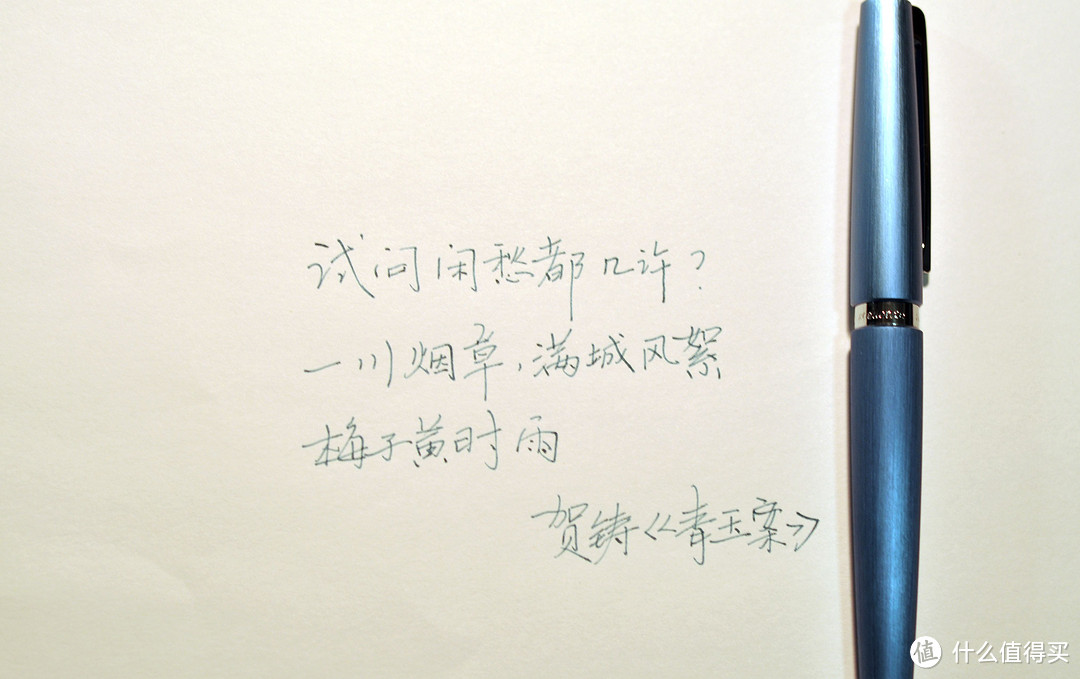 试问闲愁都几许？
一川烟草，满城风絮
梅子黄时雨
贺铸《青玉案》
值 什么值得买